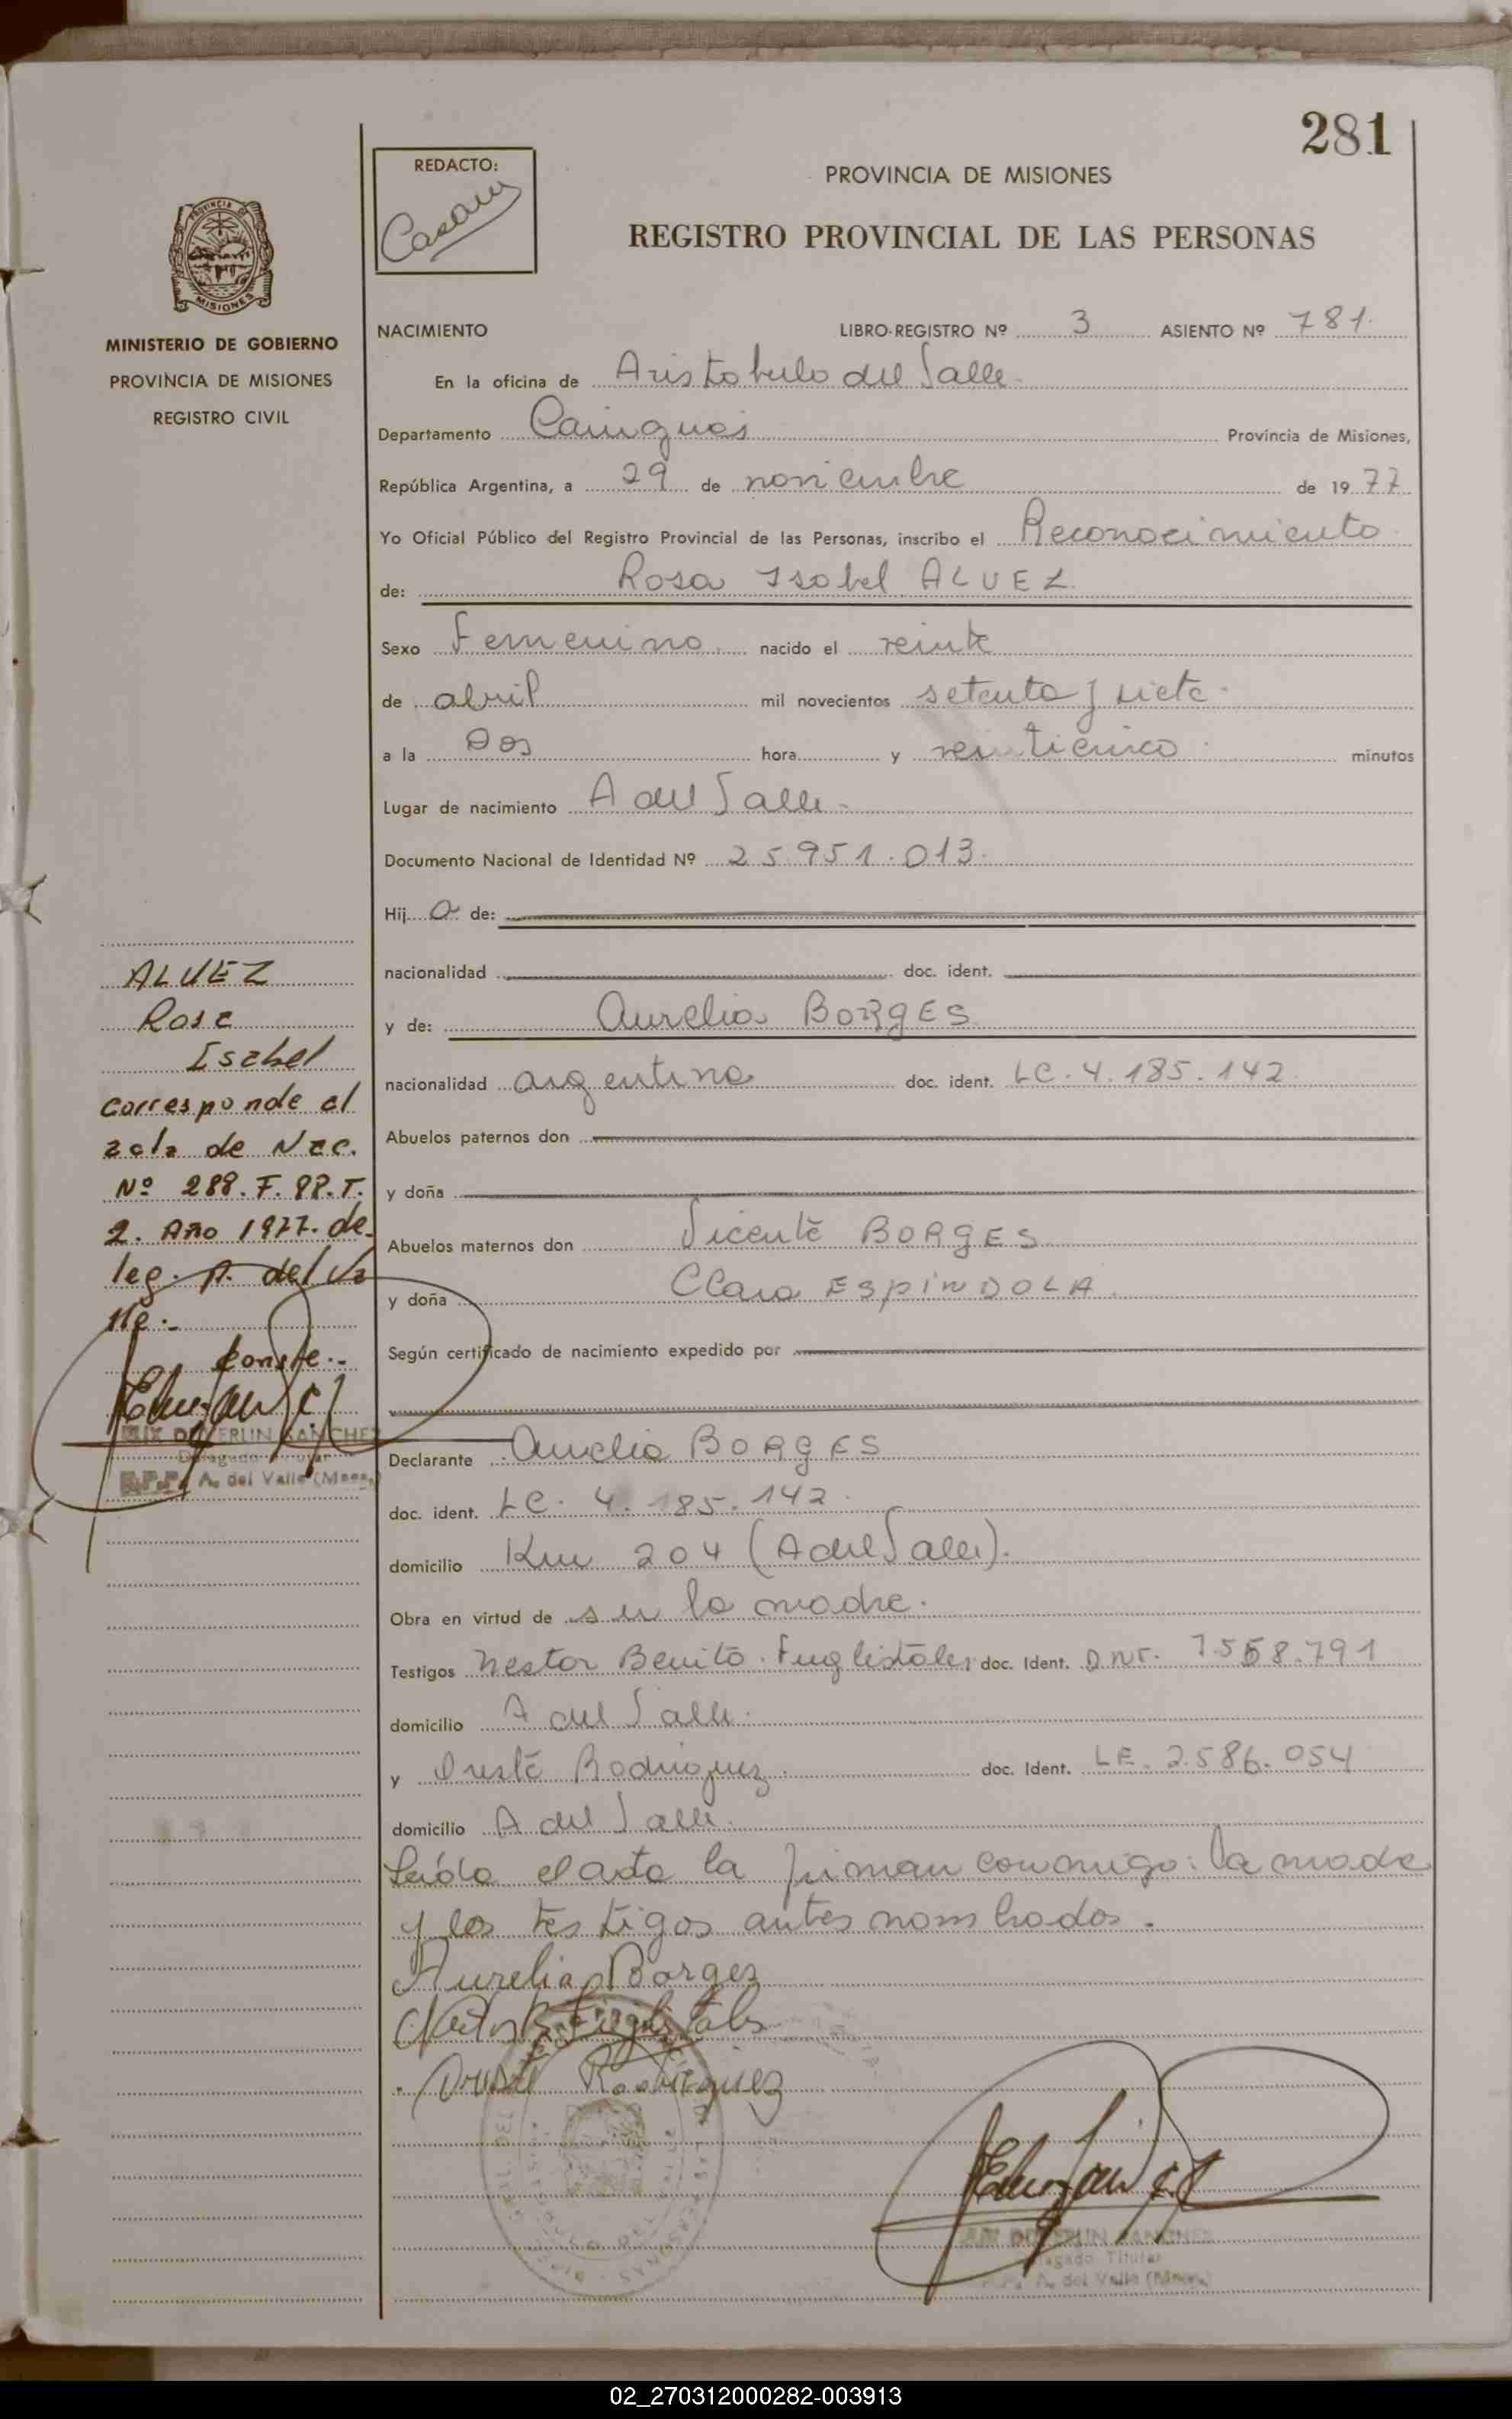 281
REDACTO:
PROVINCIA DE MISIONES
REGISTRO PROVINCIAL DE LAS PERSONAS
PROVINCIA DE
MISIONES
MINISTERIO DE GOBIERNO
PROVINCIA DE MISIONES
REGISTRO CIVIL
NACIMIENTO LIBRO-REGISTRO Nº 3 ASIENTO Nº 781.
En la oficina de Aristobulo del Valle
Departamento Cainguas Provincia de Misiones,
República Argentina, a 29 de noviembre de 1977
Yo Oficial Público del Registro Provincial de las Personas, inscribo el Reconocimiento
de: Rosa Isabel ALVEZ
Sexo Femenino. nacido el veinte
de abril mil novecientos setenta y siete.
a la Dos hora y veinticinco minutos
Lugar de nacimiento A del Valle
Documento Nacional de Identidad Nº 25.951.013.
Hij a de:
nacionalidad doc. ident.
y de: Aurelia BORGES
nacionalidad argentina doc. ident. LC. 4.185.142
Abuelos paternos don
y doña
Abuelos maternos don Vicente BORGES
y doña Clara ESPINDOLA
Según certificado de nacimiento expedido por
Declarante Aurelia BORGES
doc. ident. LC. 4.185.142.
domicilio Km 204 (A del Valle).
Obra en virtud de ser la madre.
Testigos Nestor Benito Fuglistaler doc. Ident. D.N.I. 7.558.791
domicilio A del Valle.
y Oreste Rodriguez. doc. Ident. LE. 2.586.054
domicilio A del Valle.
Leída el acta la firman conmigo: la madre
y los testigos antes nombrados.
Aurelia Borges
Oreste Rodriguez
ALVEZ
Rosa
Isabel
Corresponde al
acta de Nac.
Nº 289. F. 99. T.
2. Año 1977. de
leg. A. del Va
lle.-
Conste.-
DOVERLIN SANCHEZ
Delegado Titular
A. del Valle (Mnes.)
DOVERLIN SANCHEZ
Delegado Titular
A. del Valle (Mnes.)
02_270312000282-003913